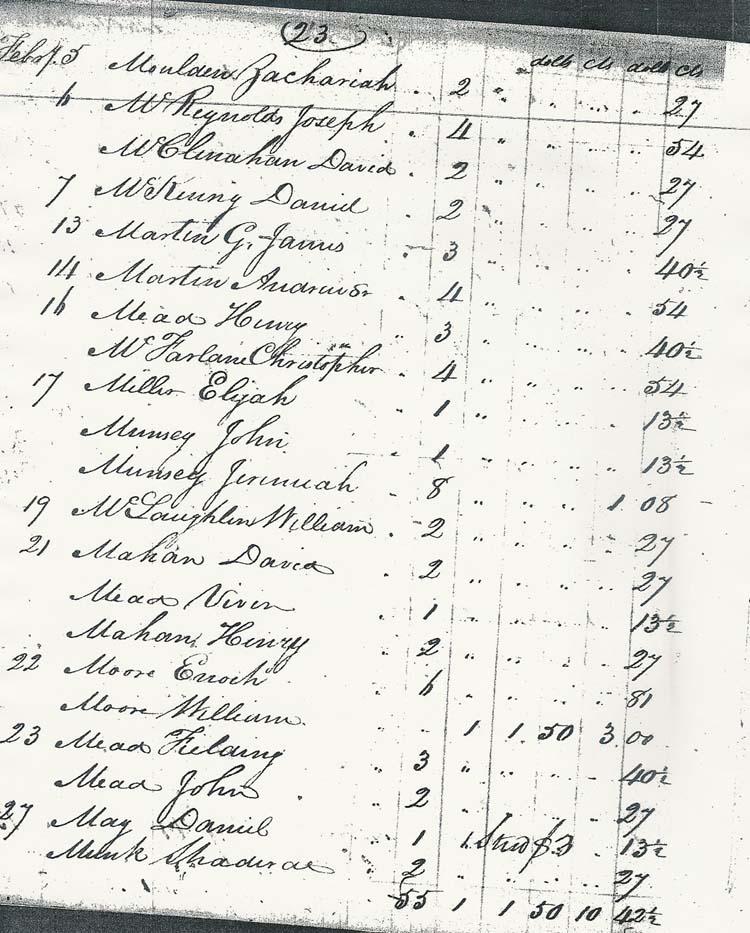 23
dolls cts dolls cts
Feby. 5 Moulden Zachariah . 2 " " " . 27
6 McReynolds Joseph . 4 " " " . 54
McClenahan David . 2 " " " . 27
7 McKinny Daniel . 2 " " " . 27
13 Martin G. James . 3 " " " . 40½
14 Martin Andrew Sr . 4 " " " . 54
16 Mead Henry . 3 " " " . 40½
McFarlane Christopher . 4 " " " . 54
17 Miller Elijah . 1 " " " . 13½
Munsey John . 1 " " " . 13½
Munsey Jeremiah . 8 " " " 1 08
19 McLaughlin William . 2 " " " . 27
21 Mahan David . 2 " " " . 27
Mead Viven . 1 " " " . 13½
Mahan Henry . 2 " " " . 27
22 Moore Enoch . 6 " " " . 81
Moore William " 1 1 50 3 00
23 Mead Fielding " 3 " " " . 40½
Mead John " 2 " " " . 27
27 May Daniel " 1 1 Stud $3 . 13½
Munk Shaderac " 2 " " " . 27
55 1 1 50 10 42½